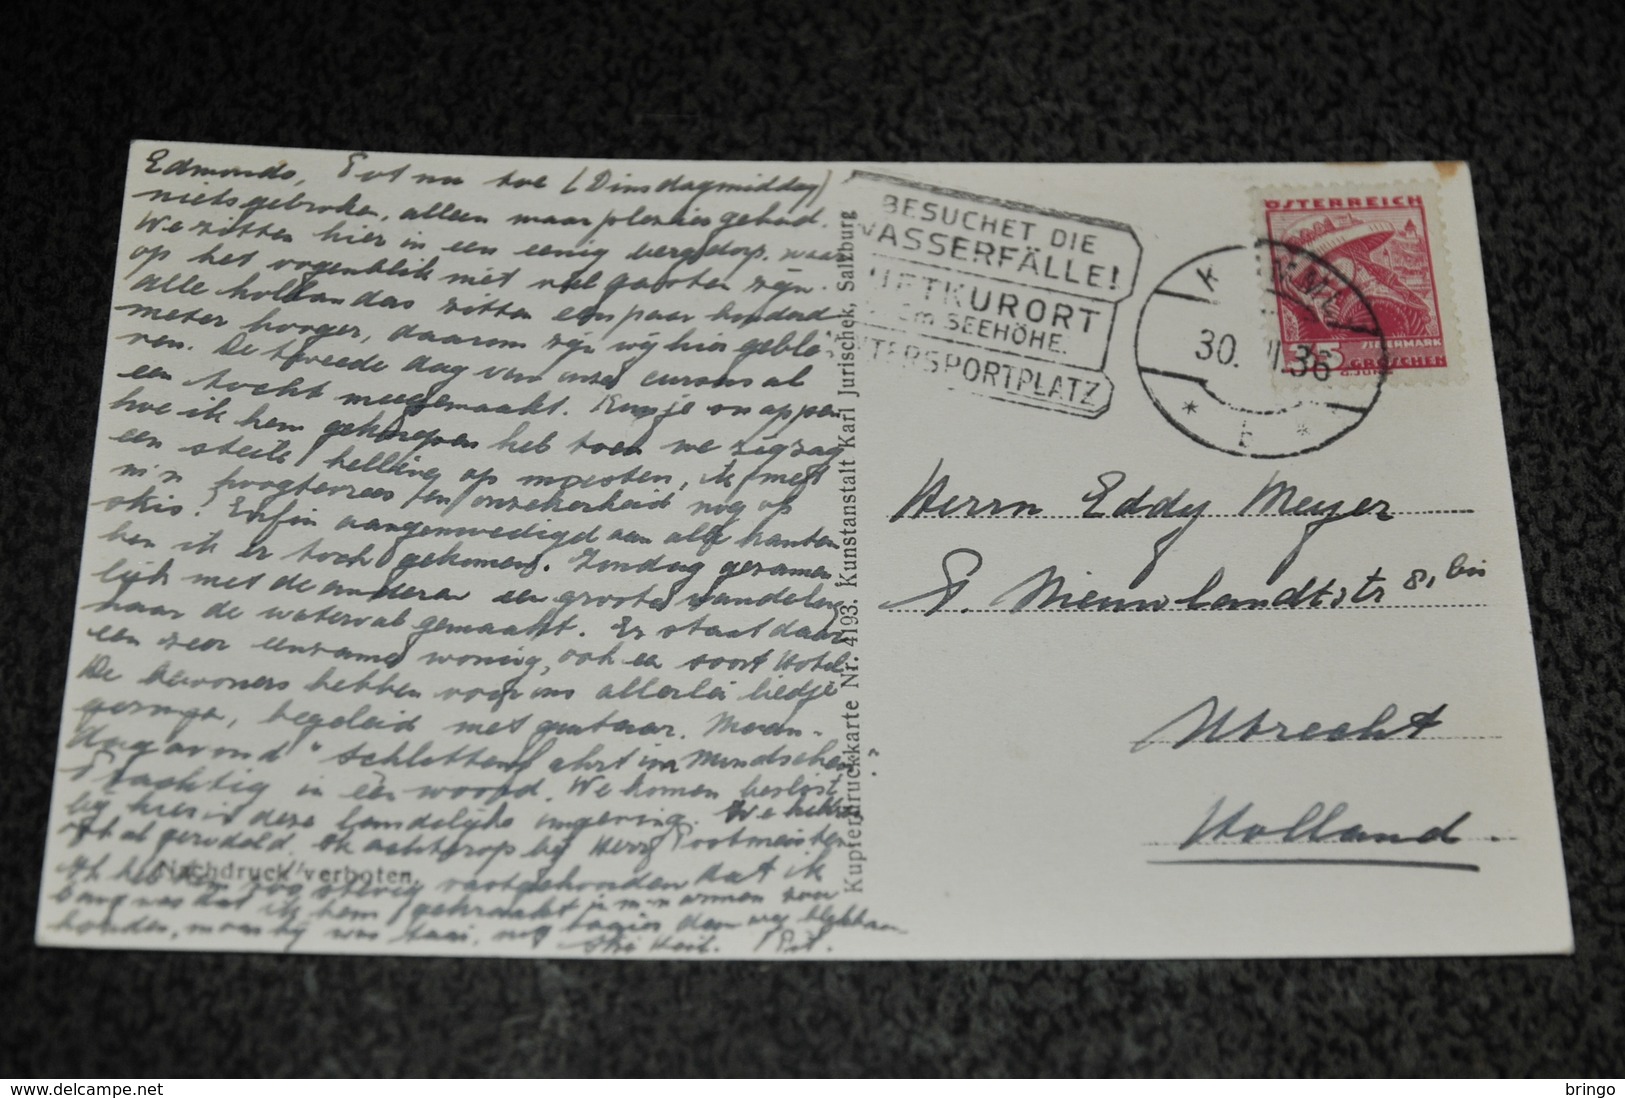 Edmondo, Tot nu toe (Dinsdagmiddag)
niets gebroken, alleen maar plezier gehad.
We zitten hier in een eenig bergdorp, waar
op het oogenblik niet veel gasten zijn.
Alle hollanders zitten een paar honderd
meter hooger, daarom zijn wij hier geble-
ven. De tweede dag van onze cursus al
een tocht meegemaakt. Kun je snappen
hoe ik hem geknepen heb toen we zigzag
een steile helling op moesten, ik met
m'n hoogtevrees en onzekerheid nog op
skis! Enfin aangemoedigd aan alle kanten
ben ik er toch gekomen. Zondag gezamen-
lijk met de anderen een groote wandeling
naar de waterval gemaakt. Er staat daar
een zeer eenzame woning, ook een soort Hotel.
De bewoners hebben voor ons allerlei liedjes
gezongen, begeleid met guitaar. Maan-
dagavond "Schlittenfahrt im Mondschein"
Prachtig in één woord. We komen beslist
bij hier in deze landelijke omgeving. We hebben
ook al gerodeld. Ik achterop bij Herr Postmeister
Ik heb me zoo stevig vastgehouden dat ik
bang was dat ik hem gekraakt in m'n armen zou
houden, maar hij was taai.
Ski Heil. Piet.
Nachdruck verboten.
Kupferdruckkarte Nr. 4193. Kunstanstalt Karl Jurischek, Salzburg
BESUCHET DIE
WASSERFÄLLE!
LUFTKURORT
m SEEHÖHE.
WINTERSPORTPLATZ
K MML
30. 36
b
ÖSTERREICH
STEIERMARK
35 GROSCHEN
Herrn Eddy Meyer
P. Nieuwlandtstr 8, bis
Utrecht
Holland.
bringo